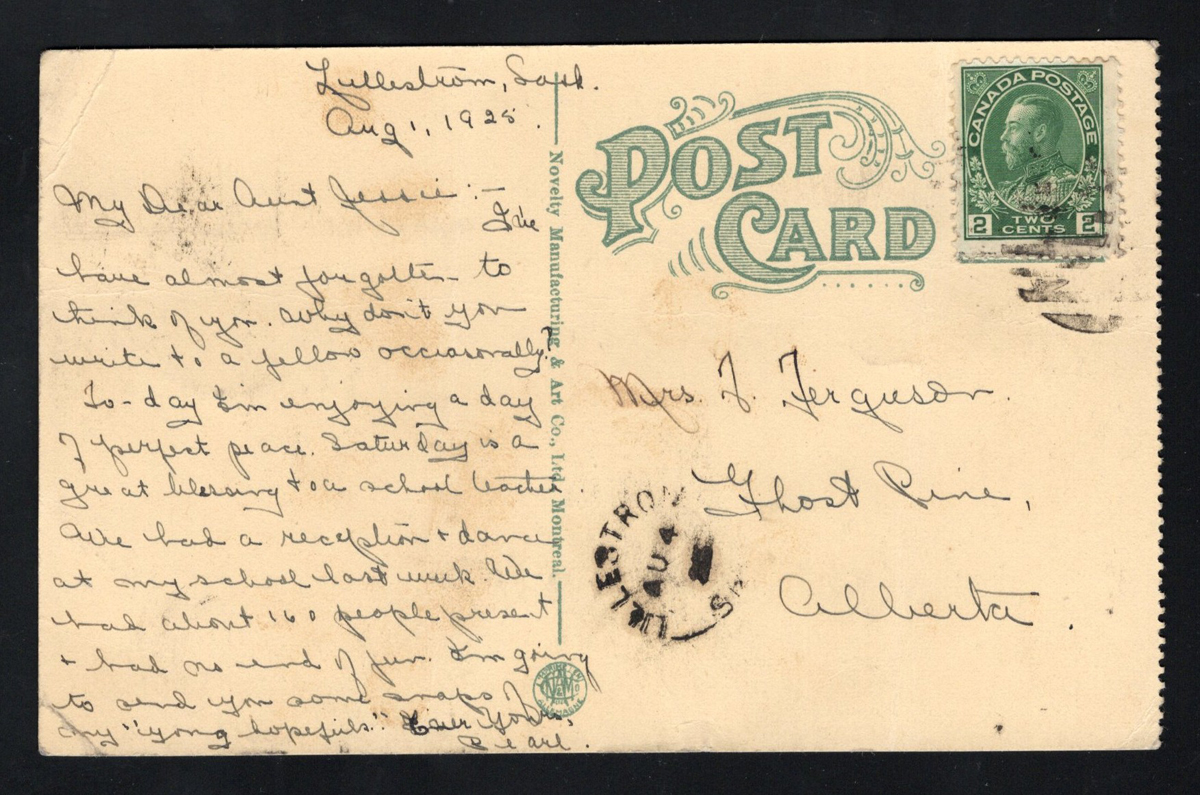 Lillestrom, Sask.
Aug 1, 1925.
My Dear Aunt Jessie:—
I've
have almost forgotten to
think of you. Why don't you
write to a fellow occasionally?
To-day I'm enjoying a day
of perfect peace. Saturday is a
great blessing to a school teacher.
We had a reception + dance
at my school last week. We
had about 160 people present
+ had no end of fun. I'm going
to send you some snaps of
my "young hopefuls." Ever Yours,
Pearl.
Novelty Manufacturing & Art Co., Ltd., Montreal.
POST
CARD
CANADA POSTAGE
2 TWO CENTS 2
Mrs. J. Ferguson.
Ghost Pine,
Alberta.
LILLESTROM
AU 4